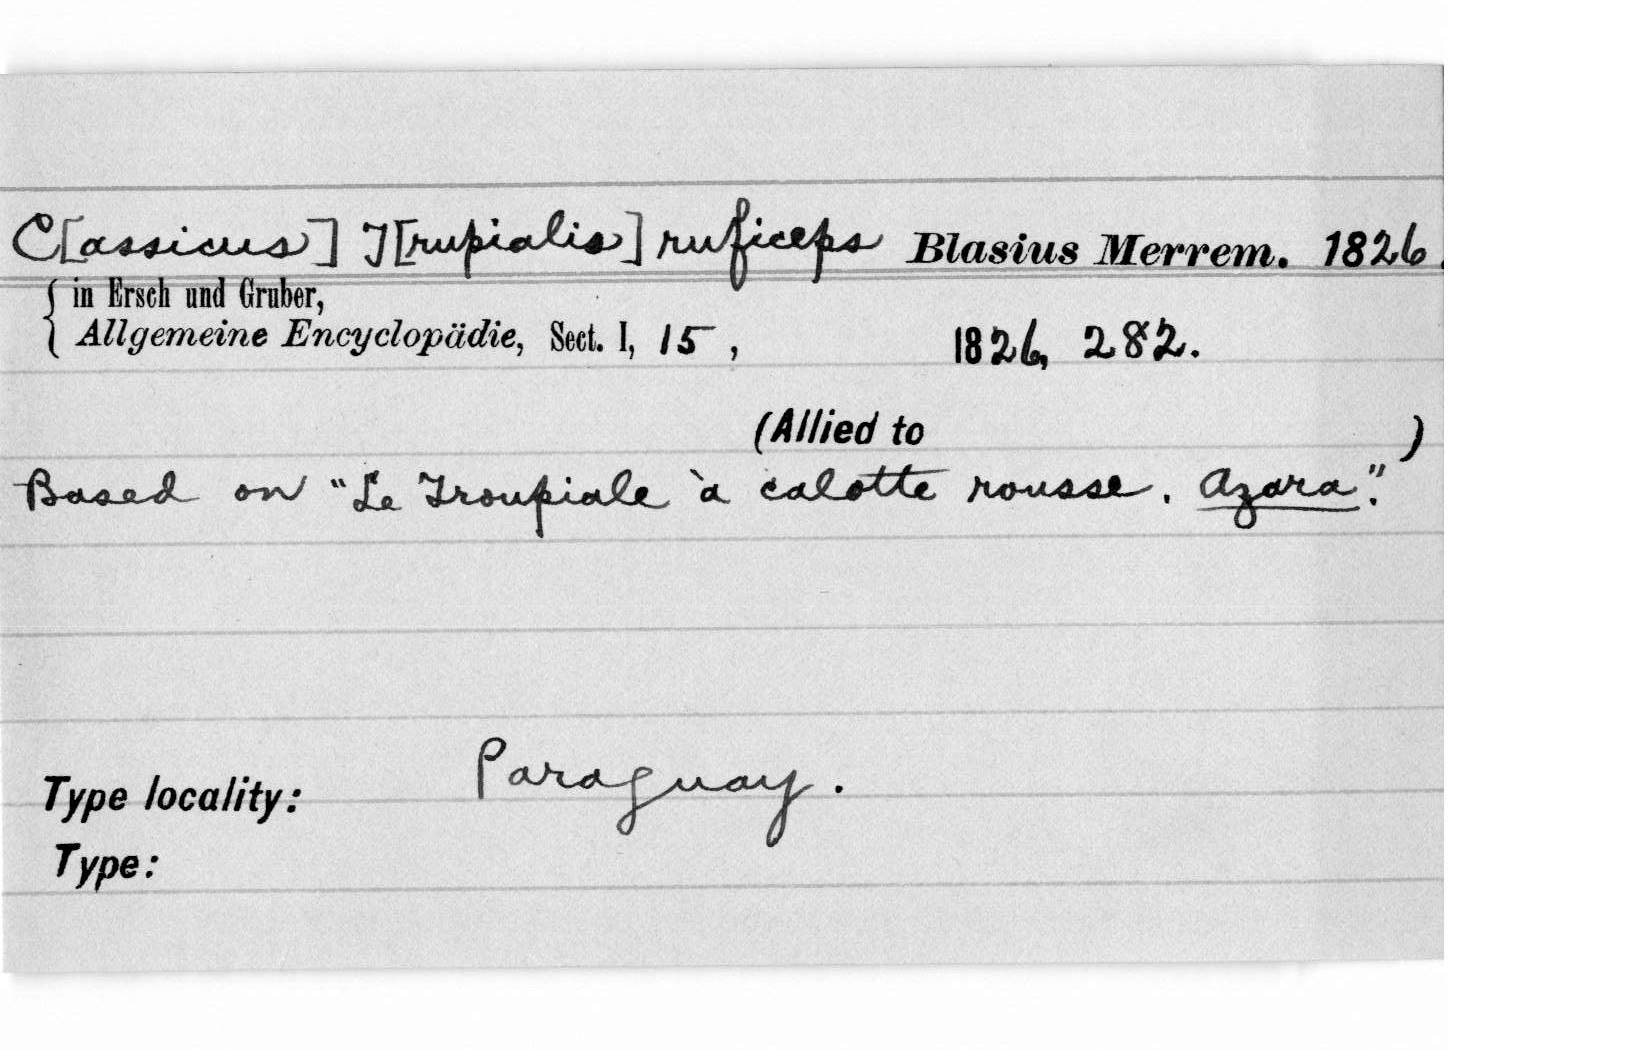 C[assicus] T[rupialis] ruficeps Blasius Merrem. 1826.
in Ersch und Gruber,
Allgemeine Encyclopädie, Sect. I, 15, 1826, 282.
(Allied to )
Based on "Le Troupiale à calotte rousse. Azara".
Type locality: Paraguay.
Type: